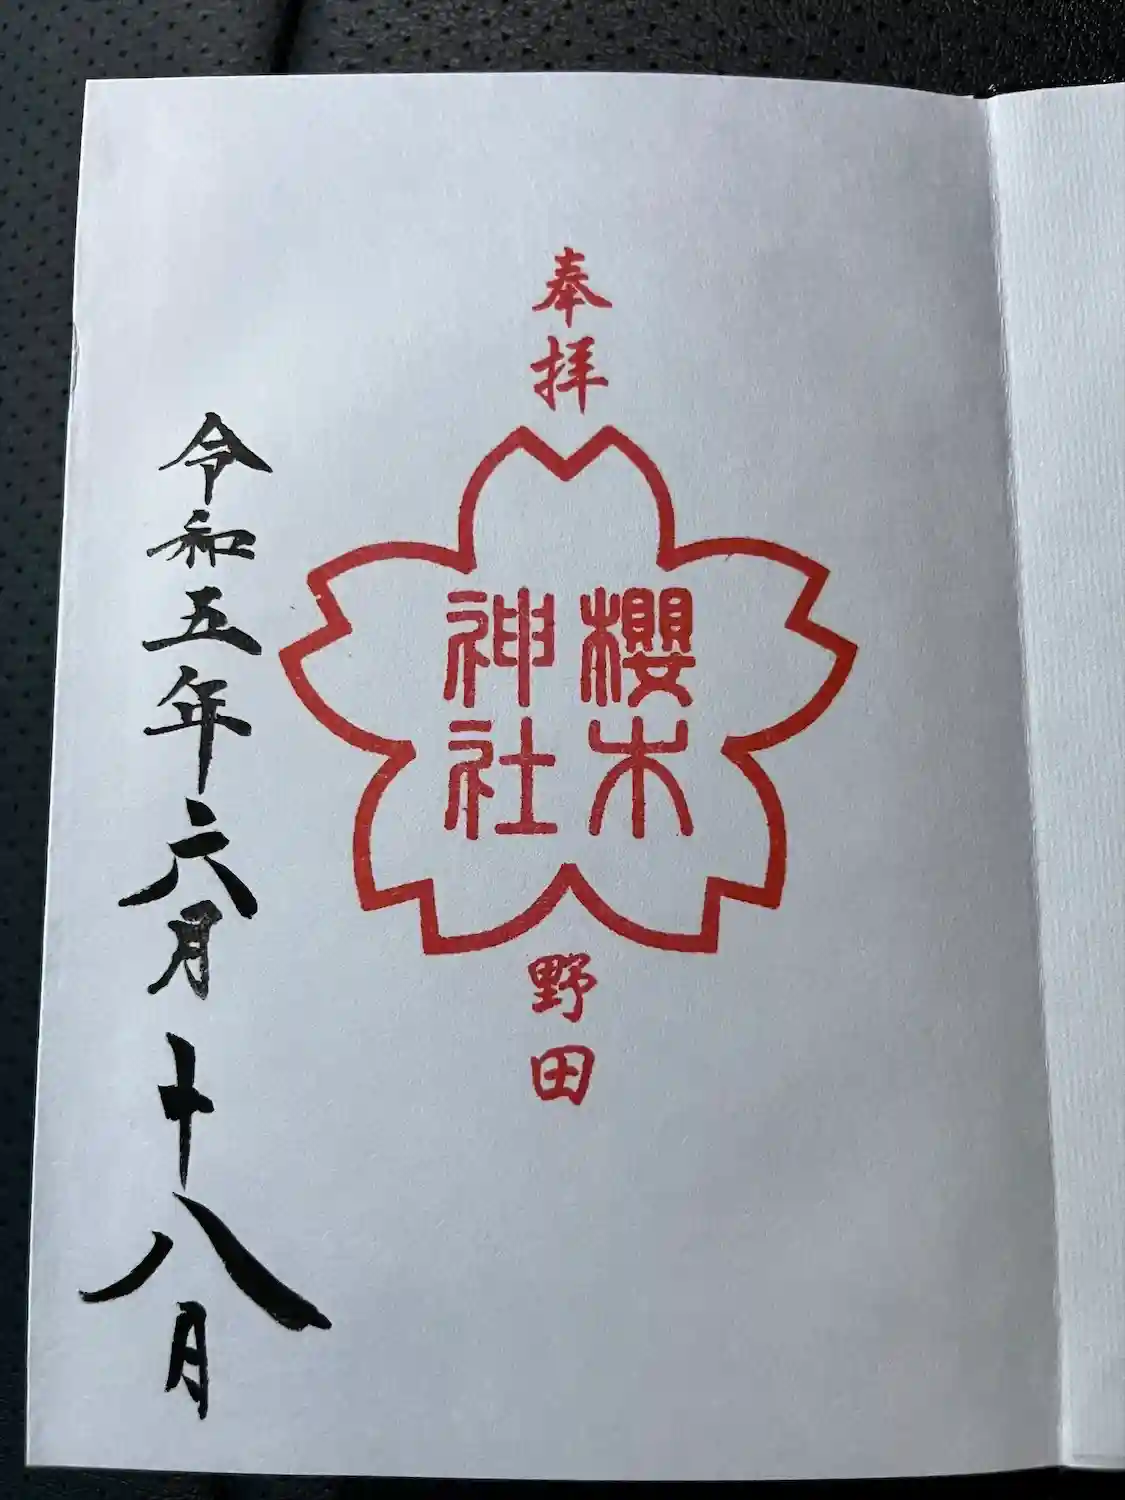 奉拝
櫻木
神社
野田
令和五年六月十八日